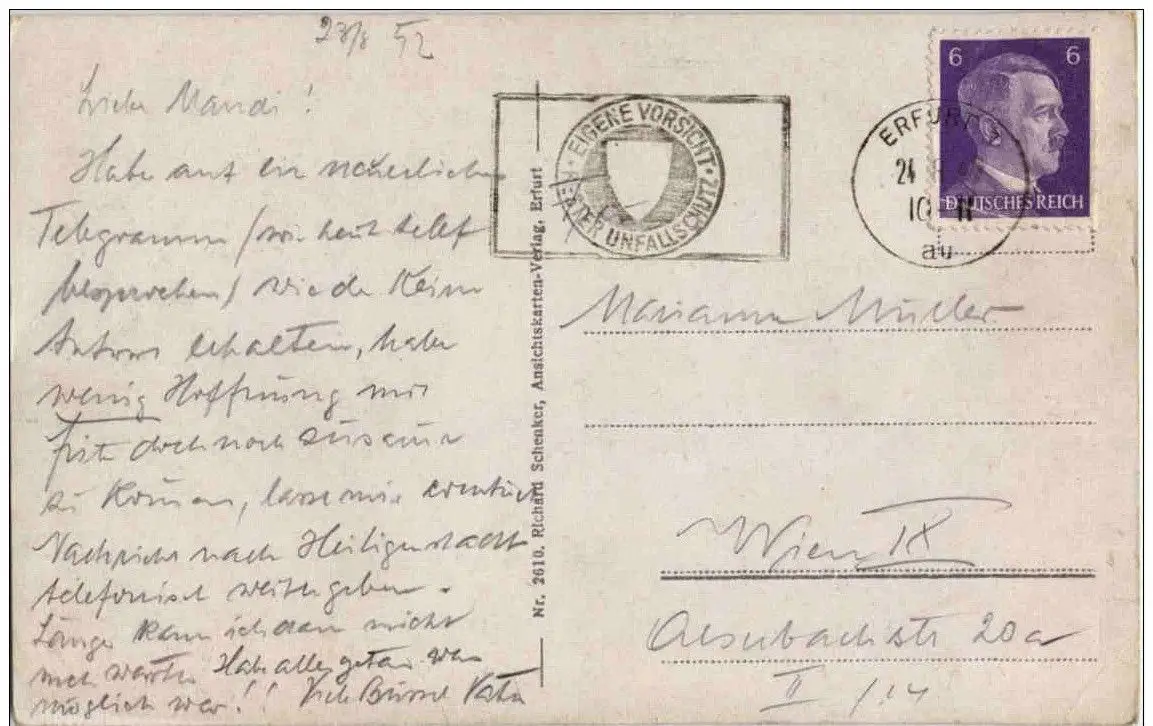 23/8 42
Liebe Mandi!
Habe auf ein neuerliches
Telegramm / wie heut telef
besprochen / wieder keine
Antwort erhalten, habe
wenig Hoffnung mir
doch noch
zu können, lasse mir eventuell
Nachricht nach Heiligenstadt
telefonisch weitergeben.
Länger kann ich dan nicht
mehr warten. Habe alles getan was
möglich war!! Viele Bussel
Nr. 2610. Richard Schenker, Ansichtskarten-Verlag, Erfurt
EIGENE VORSICHT
BESTER UNFALLSCHUTZ
ERFURT
24
10
au
6 6
DEUTSCHES REICH
Mariann Müller
Wien IX
20a
II /14